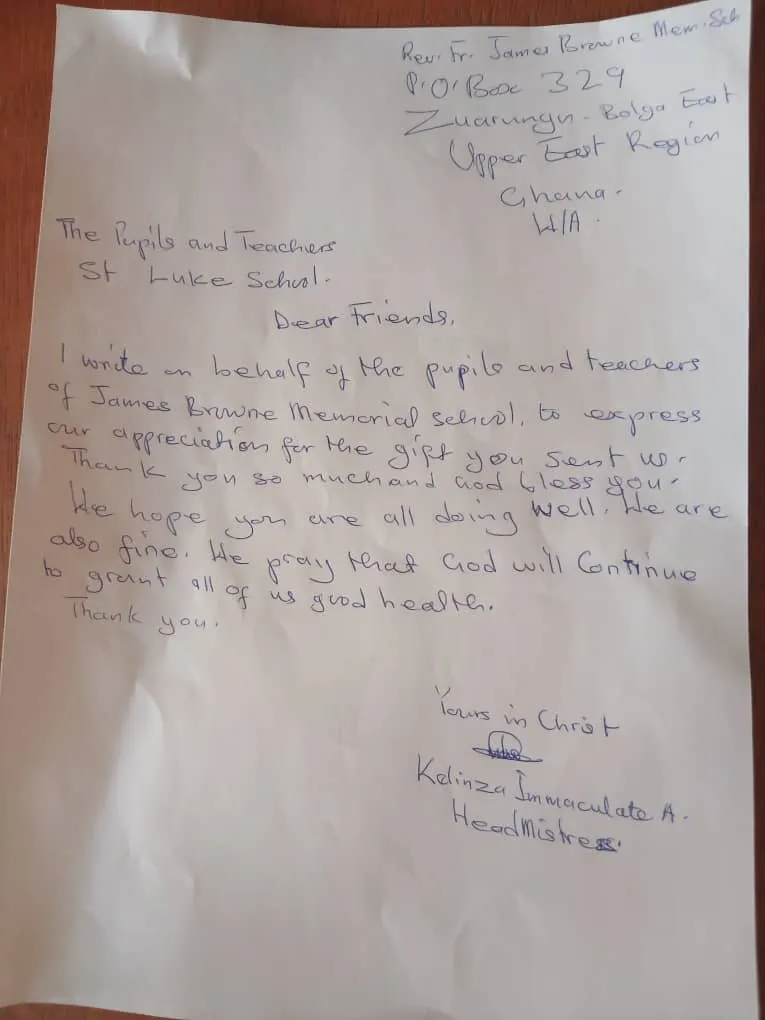 Rev. Fr. James Browne Mem. Sch
P.O. Box 329
Zuarungu - Bolga East
Upper East Region
Ghana.
W/A.
The Pupils and Teachers
St Luke School.
Dear Friends,
I write on behalf of the pupils and teachers
of James Browne Memorial school, to express
our appreciation for the gift you sent us.
Thank you so much and God bless you.
We hope you are all doing well. We are
also fine. We pray that God will Continue
to grant all of us good health.
Thank you.
Yours in Christ
Kelinza Immaculate A.
HeadMistress.